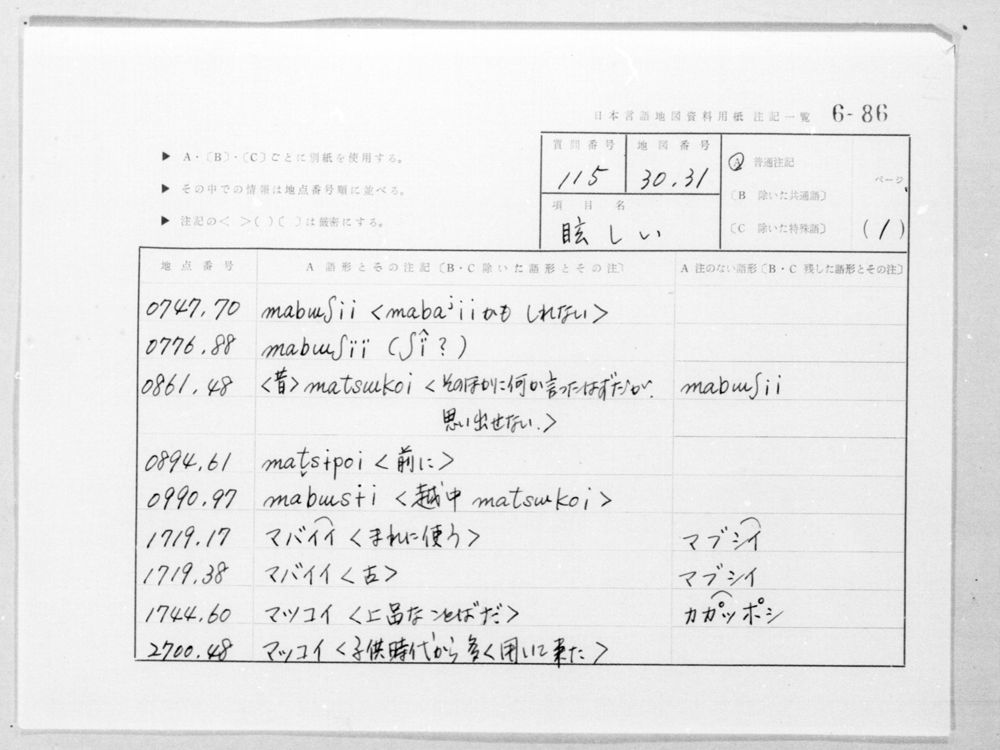 日本言語地図資料用紙 注記一覧 6-86
▶ A・〔B〕・〔C〕ごとに別紙を使用する。
▶ その中での情報は地点番号順に並べる。
▶ 注記の< >( )〔 〕は厳密にする。
質問番号 地図番号
115 30.31
項目名
眩しい
Ⓐ 普通注記
〔B 除いた共通語〕
〔C 除いた特殊語〕
ページ
(1)
地点番号 A 語形とその注記〔B・C 除いた語形とその注〕 A 注のない語形〔B・C 残した語形とその注〕
0747.70 mabɯʃii <mabaʲiiかも しれない>
0776.88 mabɯʃïï (ʃîï?)
0861.48 <昔>matsɯkoi <そのほかに何か言ったはずだが、 mabɯʃii
思い出せない.>
0894.61 matsɨpoi <前に>
0990.97 mabɯsɨi <越中 matsɯkoi>
1719.17 マバイイ <まれに使う> マブシイ
1719.38 マバイイ <古> マブシイ
1744.60 マツコイ <上品なことばだ> カカ゚ッポシ
2700.48 マッコイ <子供時代から多く用いて来た>